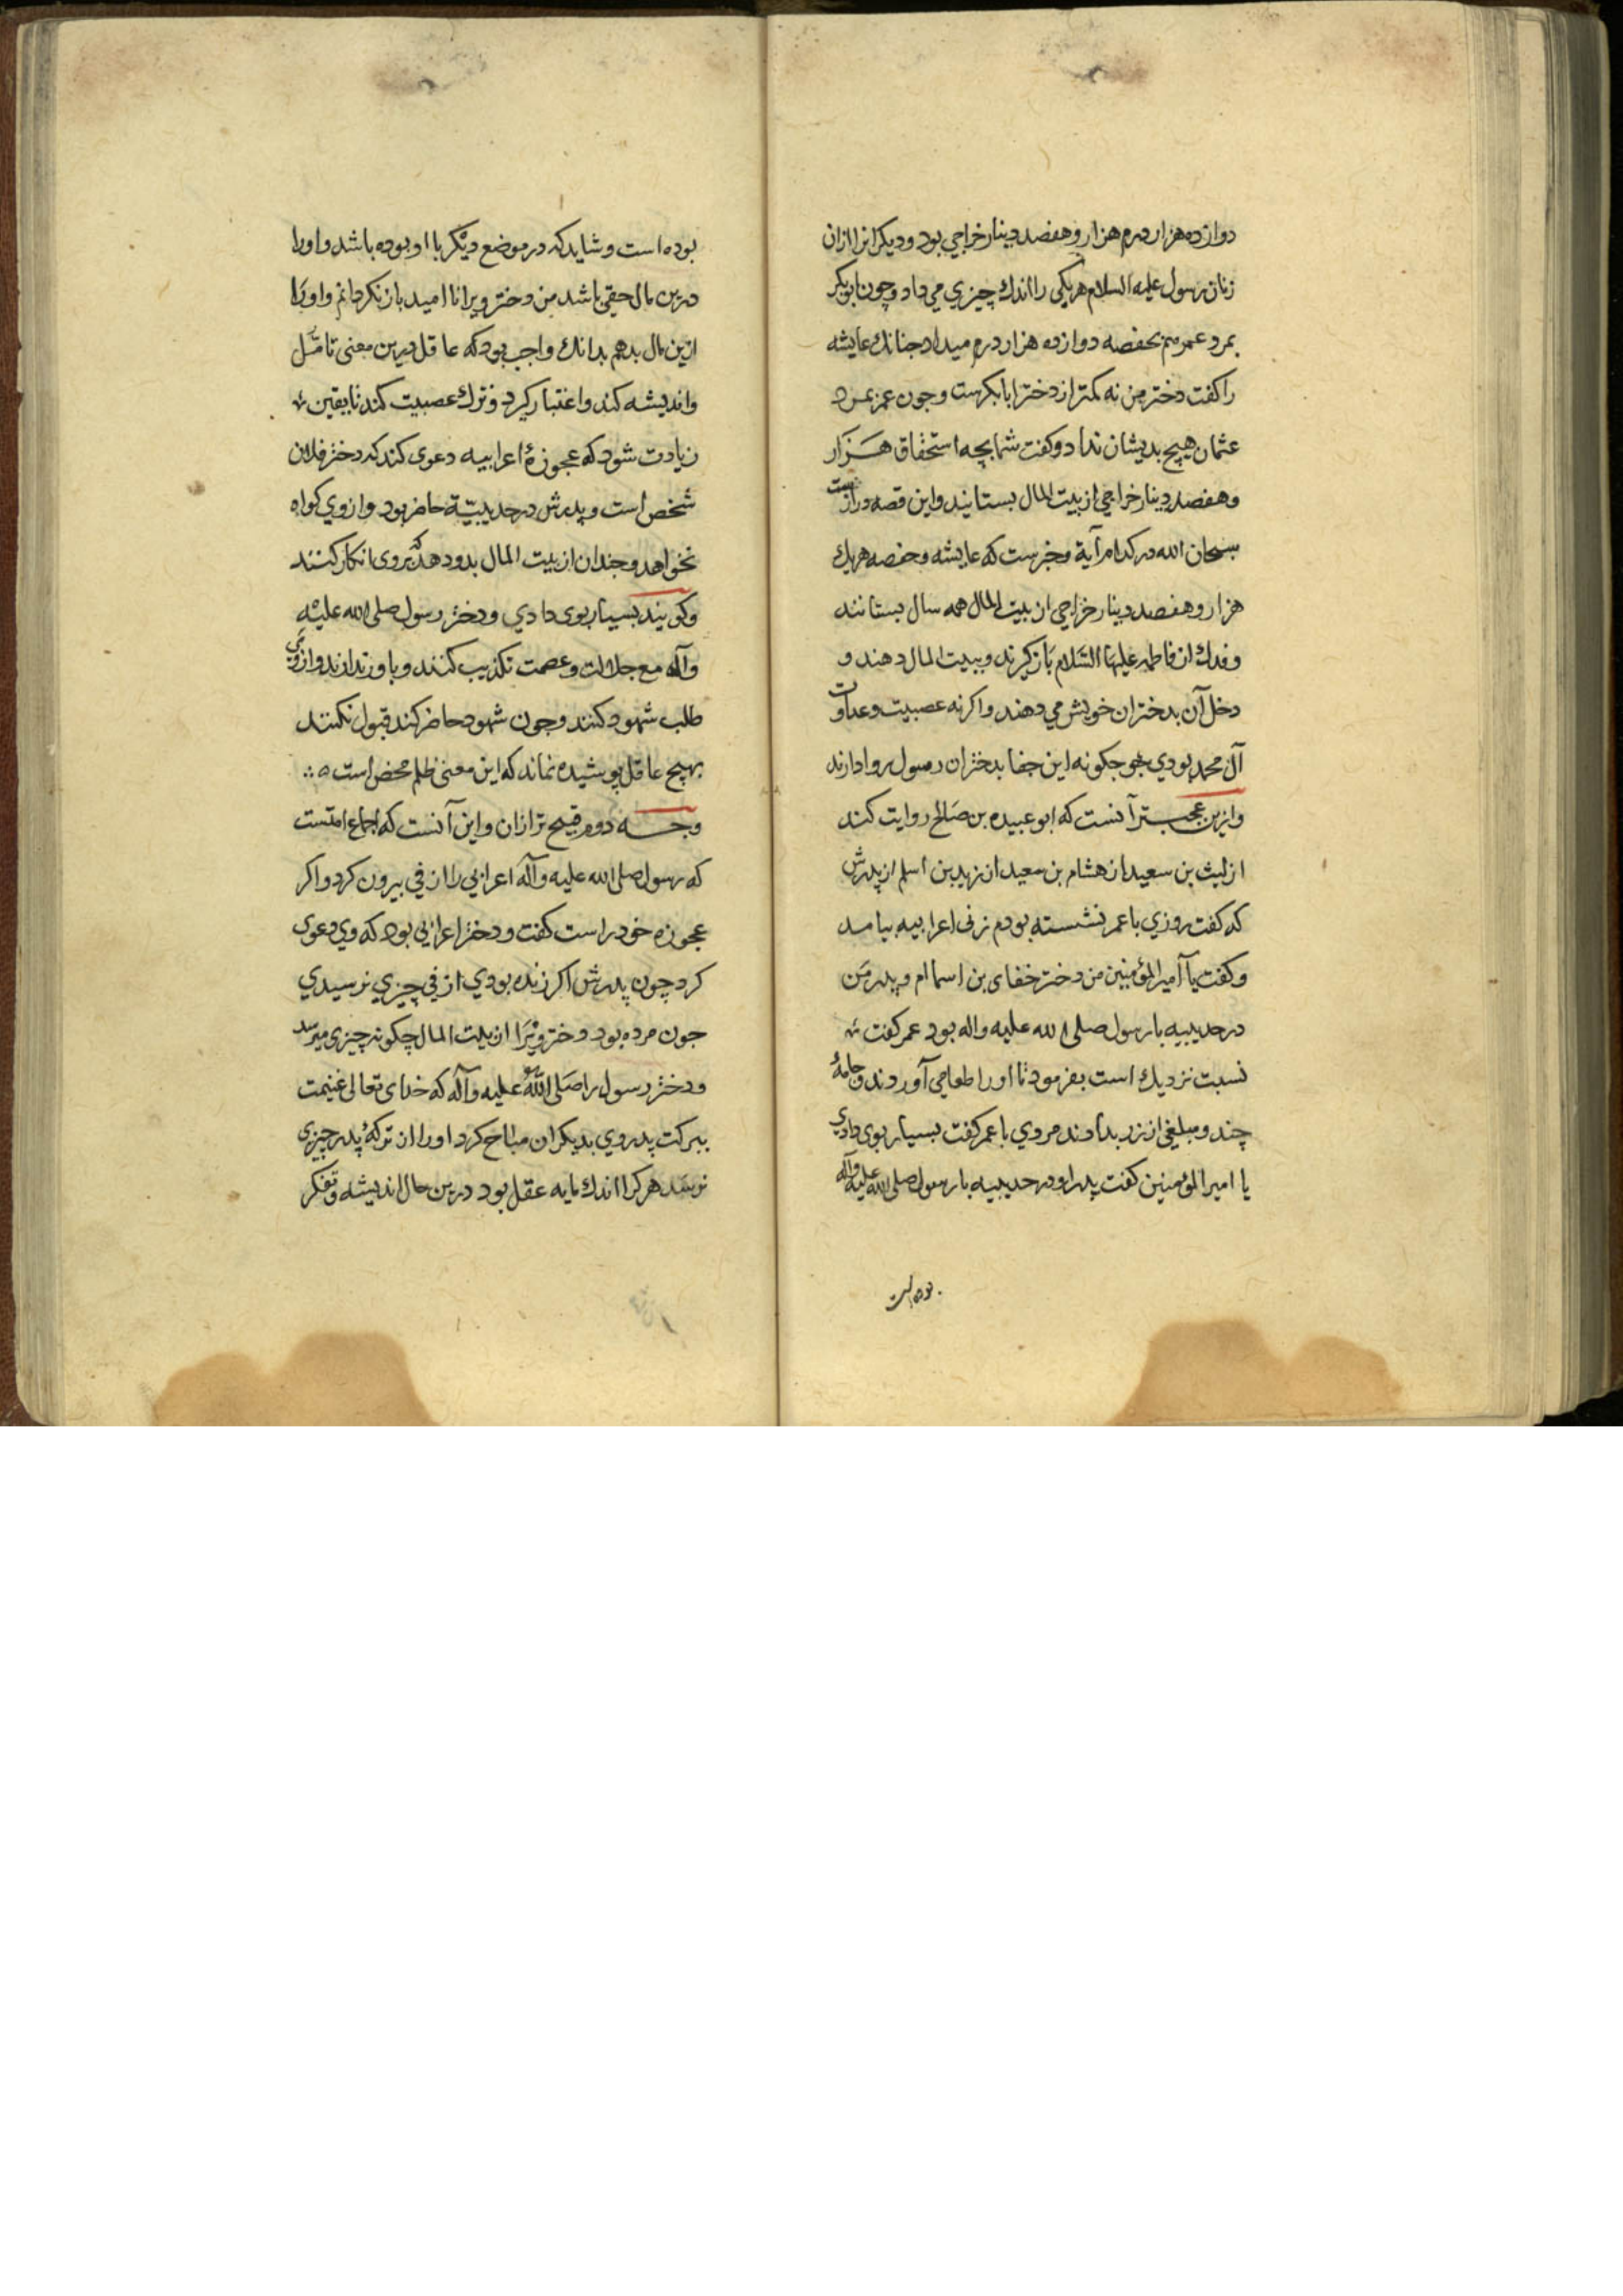 دوازده هزار درم هزار و هفصد دینار خراجی بود و دیکرانرا ازان
زنان رسول علیه السلام هریکی را اندك چیزی می داد و چون ابوبکر
بمرد عمر هم بحفصه دوازده هزار درم میداد جنانك عایشه
را کفت دختر من نه کمتر از دختر ابابکرست وجون عمر بمرد
عثمان هیچ بدیشان نداد و کفت شما بچه استحقاق هزار
وهفصد دینار خراجی از بیت المال بستانید واین قصه درازست
سبحان الله در کدام آیة وخبرست که عایشه وحفصه هریك
هزار و هفصد دینار خراجی از بیت المال همه سال بستانند
و فدك از فاطمه علیها السلام باز کیرند و ببیت المال دهند و
دخل آن بدختران خویش می دهند واکر نه عصبیت وعداوت
آل محمد بودی جکونه این جفا بدختران رسول روا دارند
وازین عجبتر آنست که ابو عبیده بن صالح روایت کند
از لیث بن سعید از هشام بن سعید از زید بن اسلم از پدرش
که کفت روزی با عمر نشسته بودم زنی اعرابیه بیامد
و کفت یا آمیر المؤمنین من دختر خفای بن اسماام و پدر من
در حدیبیه با رسول صلی الله علیه واله بود عمر کفت
نسبت نزدیك است بفرمود تا اورا طعامی آوردند و جامهٔ
چند و مبلغی از زر بدادند مردی با عمر کفت بسیار بوی دادی
یا امیر المؤمنین کفت پدر او در حدیبیه با رسول صلی الله علیه وآله
بوده است
بوده است و شاید که در موضع دیکر با او بوده باشد و اورا
درین مال حقی باشد من دختر ویرا نا امید باز نکردانم و اورا
ازین مال بدهم بدانك واجب بود که عاقل درین معنی تامّل
واندیشه کند و اعتبار کیرد و ترك عصبیت کند تا یقین
زیادت شود که عجوزهٔ اعرابیه دعوی کند که دختر فلان
شخص است و پدرش در حدیبیّة حاضر بود و از وی کواه
نخواهد و جندان از بیت المال بدو دهد که بروی انکار کنند
وکویند بسیار بوی دادی و دختر رسول صلی الله علیه
وآله مع جلالت و عصمت تکذیب کنند و باور ندارند و از وی
طلب شهود کنند وجون شهود حاضر کند قبول نکنند
بهیچ عاقل پوشیده نماند که این معنی ظلم محض است
وجه دوم قبیح تر ازان و این آنست که اجماع امتست
که رسول صلی الله علیه وآله اعرابی را از فی بیرون کرد واکر
عجوزه خود راست کفت و دختر اعرابی بود که وی دعوی
کرد چون پدرش اکر زنده بودی از فی چیزی نرسیدی
جون مرده بود دختر ویرا از بیت المال چکونه چیزی میرسد
و دختر رسول را صلی اللّه علیه وآله که خدای تعالی غنیمت
ببرکت پدر وی بدیکران مباح کرد اورا از ترکهٔ پدر چیزی
نرسد هر کرا اندك مایه عقل بود درین حال اندیشه و تفکر